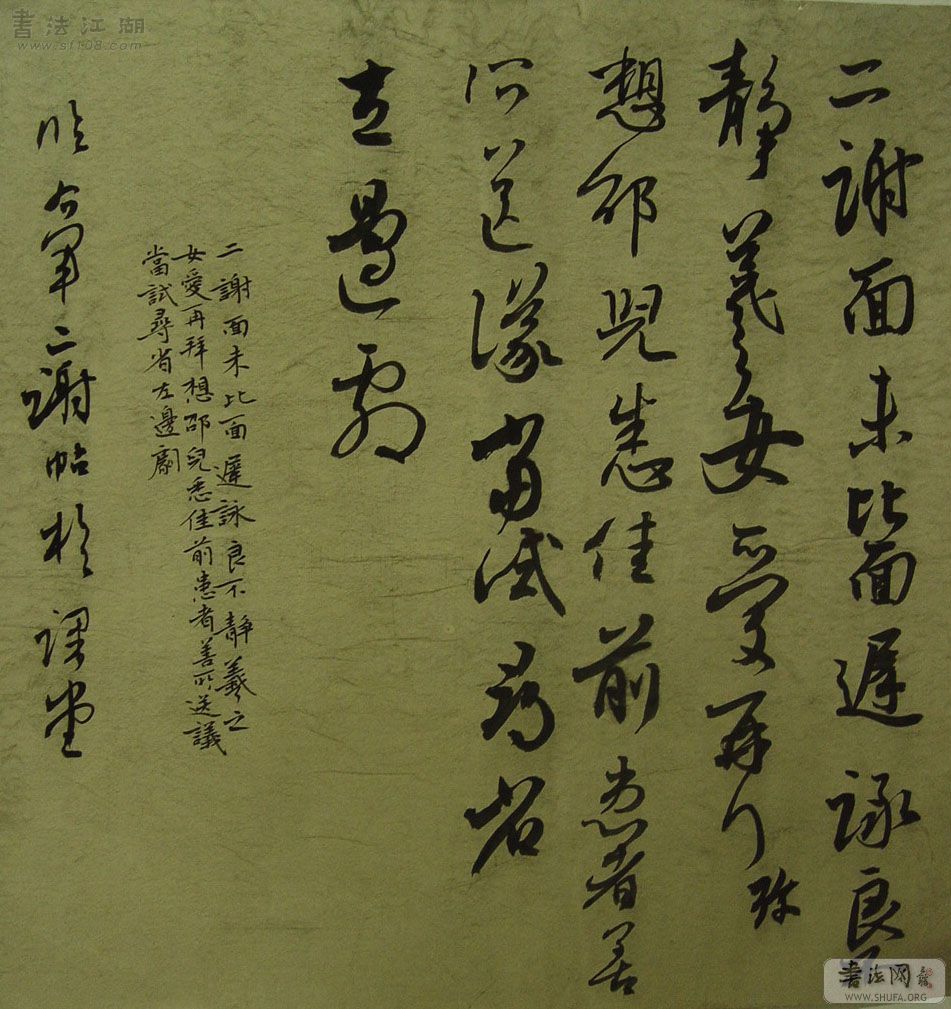 二謝面未比面遲詠良不
靜羲之女愛再拜
想邵兒悉佳前患者善
所送議當試尋省
左邊劇
二謝面未比面遲詠良不靜羲之
女愛再拜想邵兒悉佳前患者善所送議
當試尋省左邊劇
臨右軍二謝帖於
書法江湖
www.sf108.com
書法网
WWW.SHUFA.ORG